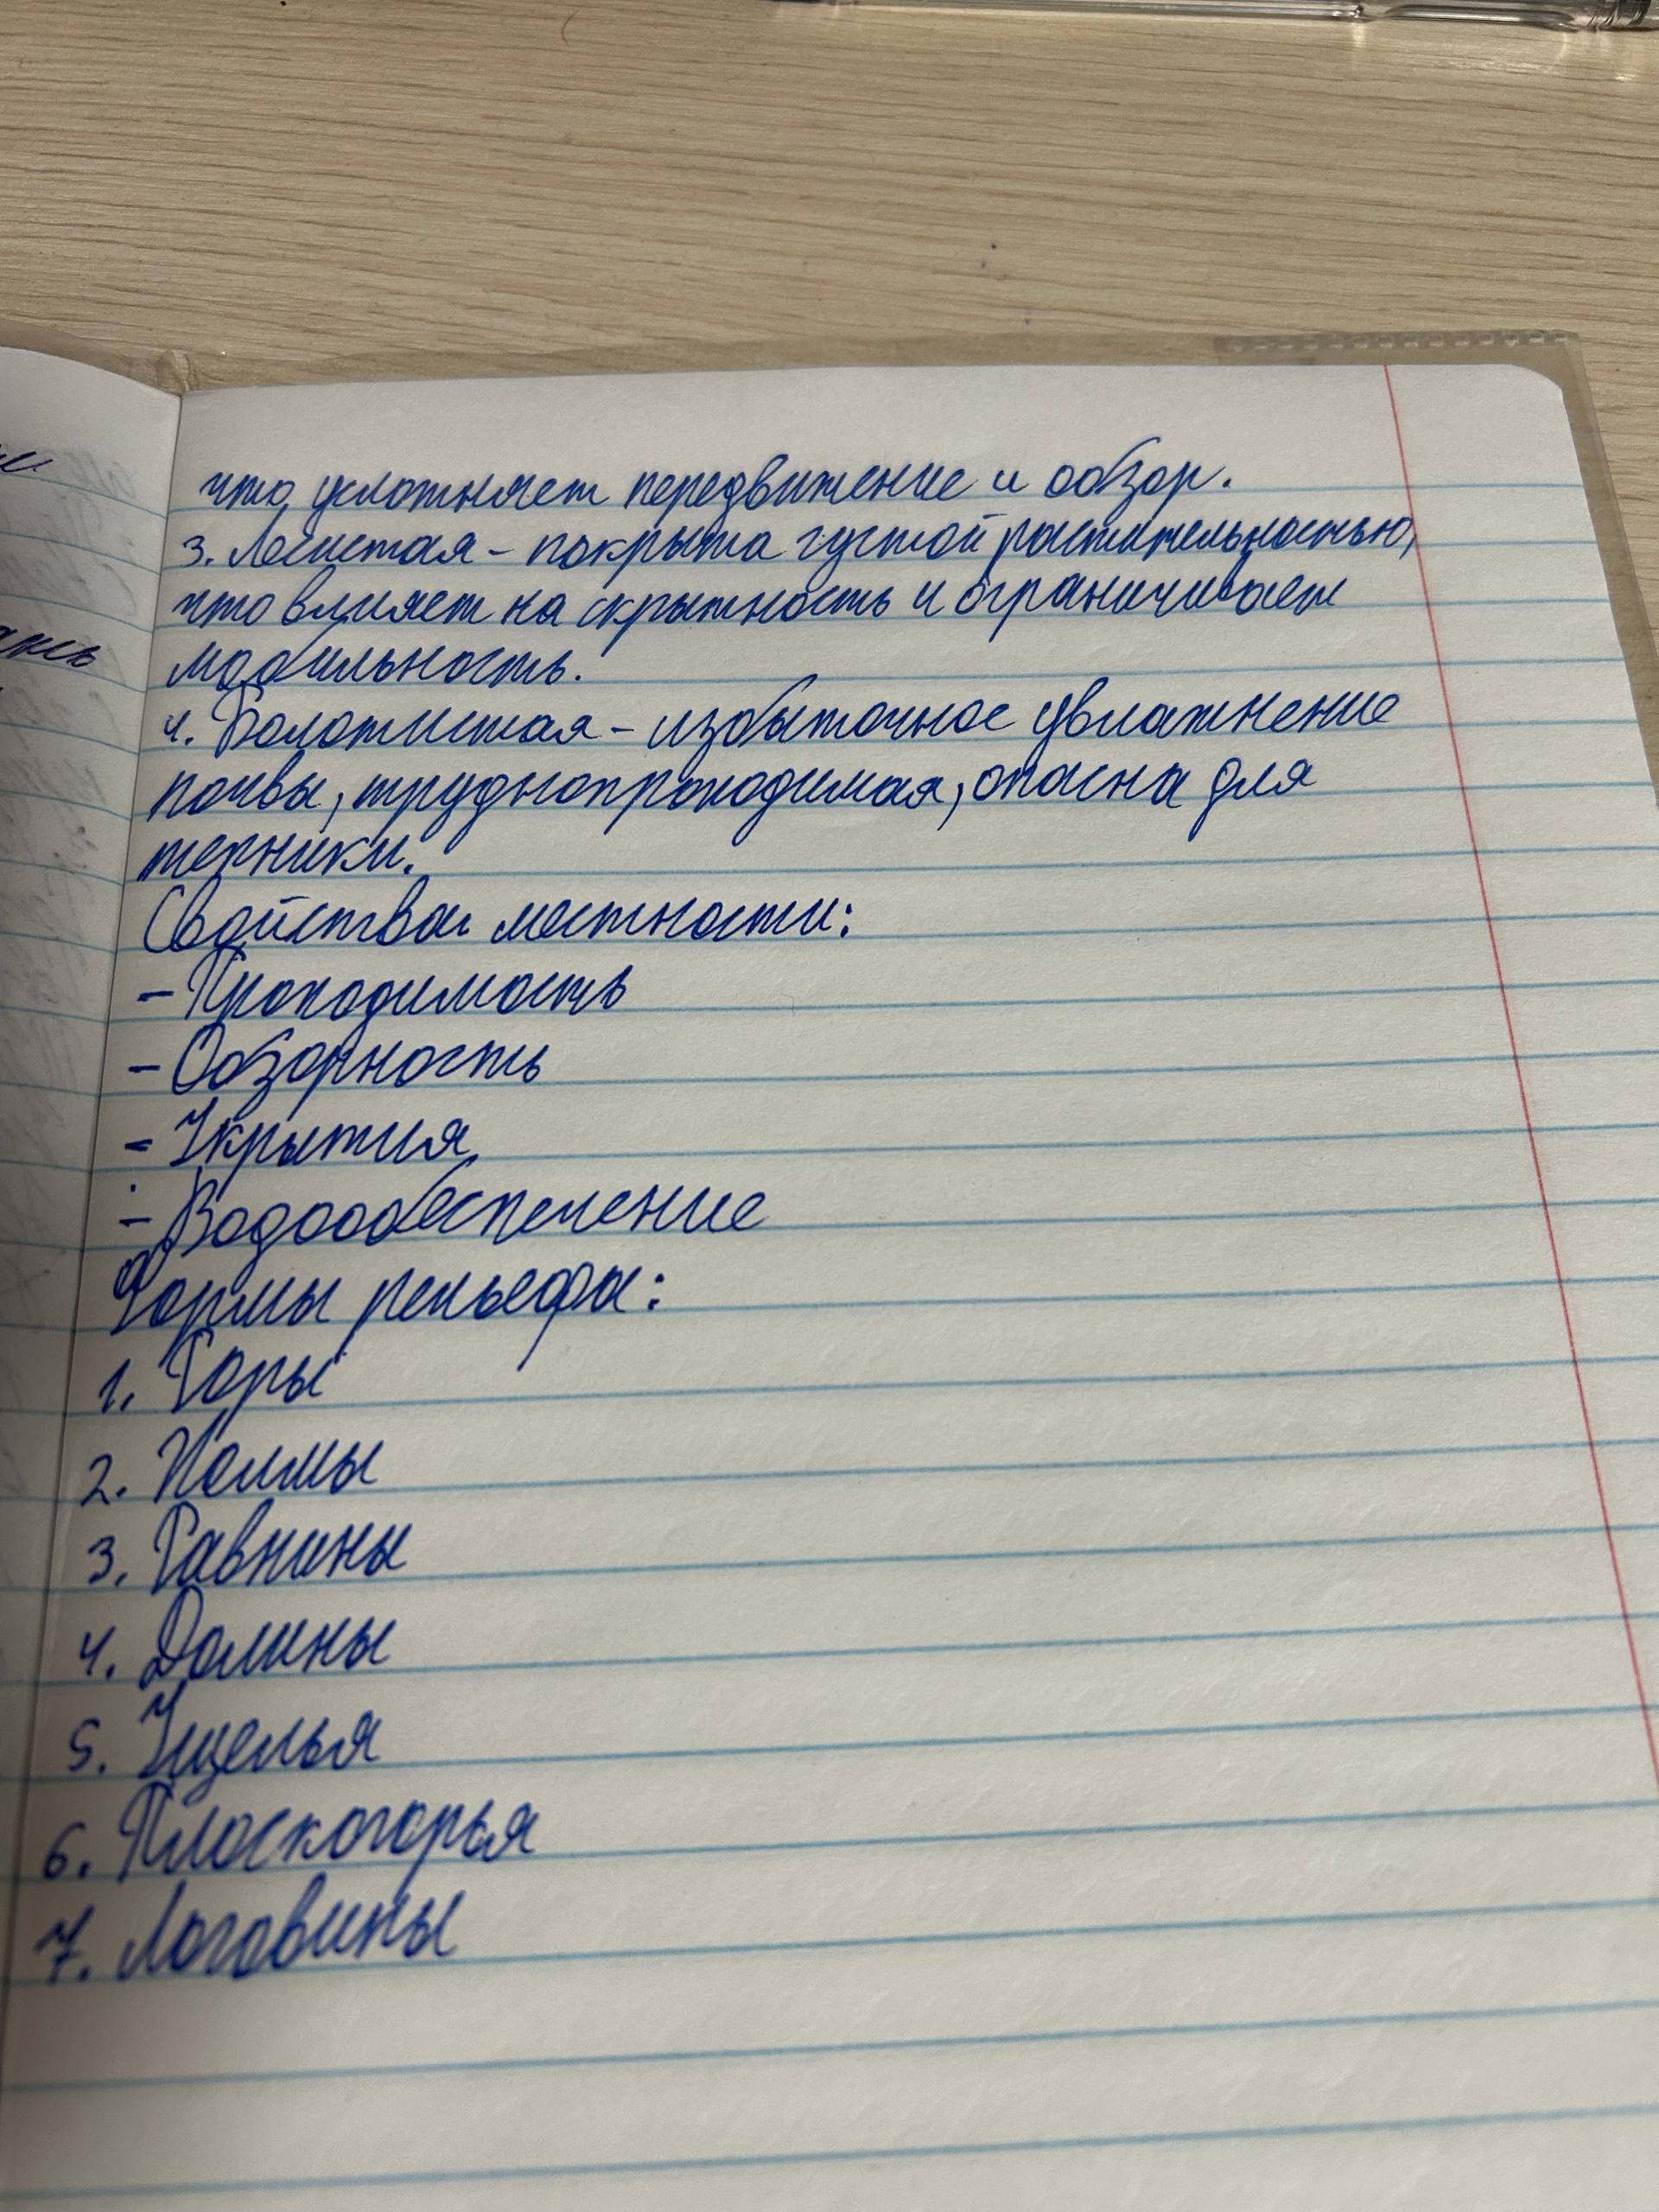 что усложняет передвижение и обзор.
3. Лесистая – покрыта густой растительностью,
что влияет на скрытность и ограничивает
мобильность.
4. Болотистая – избыточное увлажнение
почвы, труднопроходимая, опасна для
техники.
Свойства местности:
– Проходимость
– Обзорность
– Укрытия
– Водообеспечение
Формы рельефа:
1. Горы
2. Холмы
3. Равнины
4. Долины
5. Ущелья
6. Плоскогорья
7. Логовины